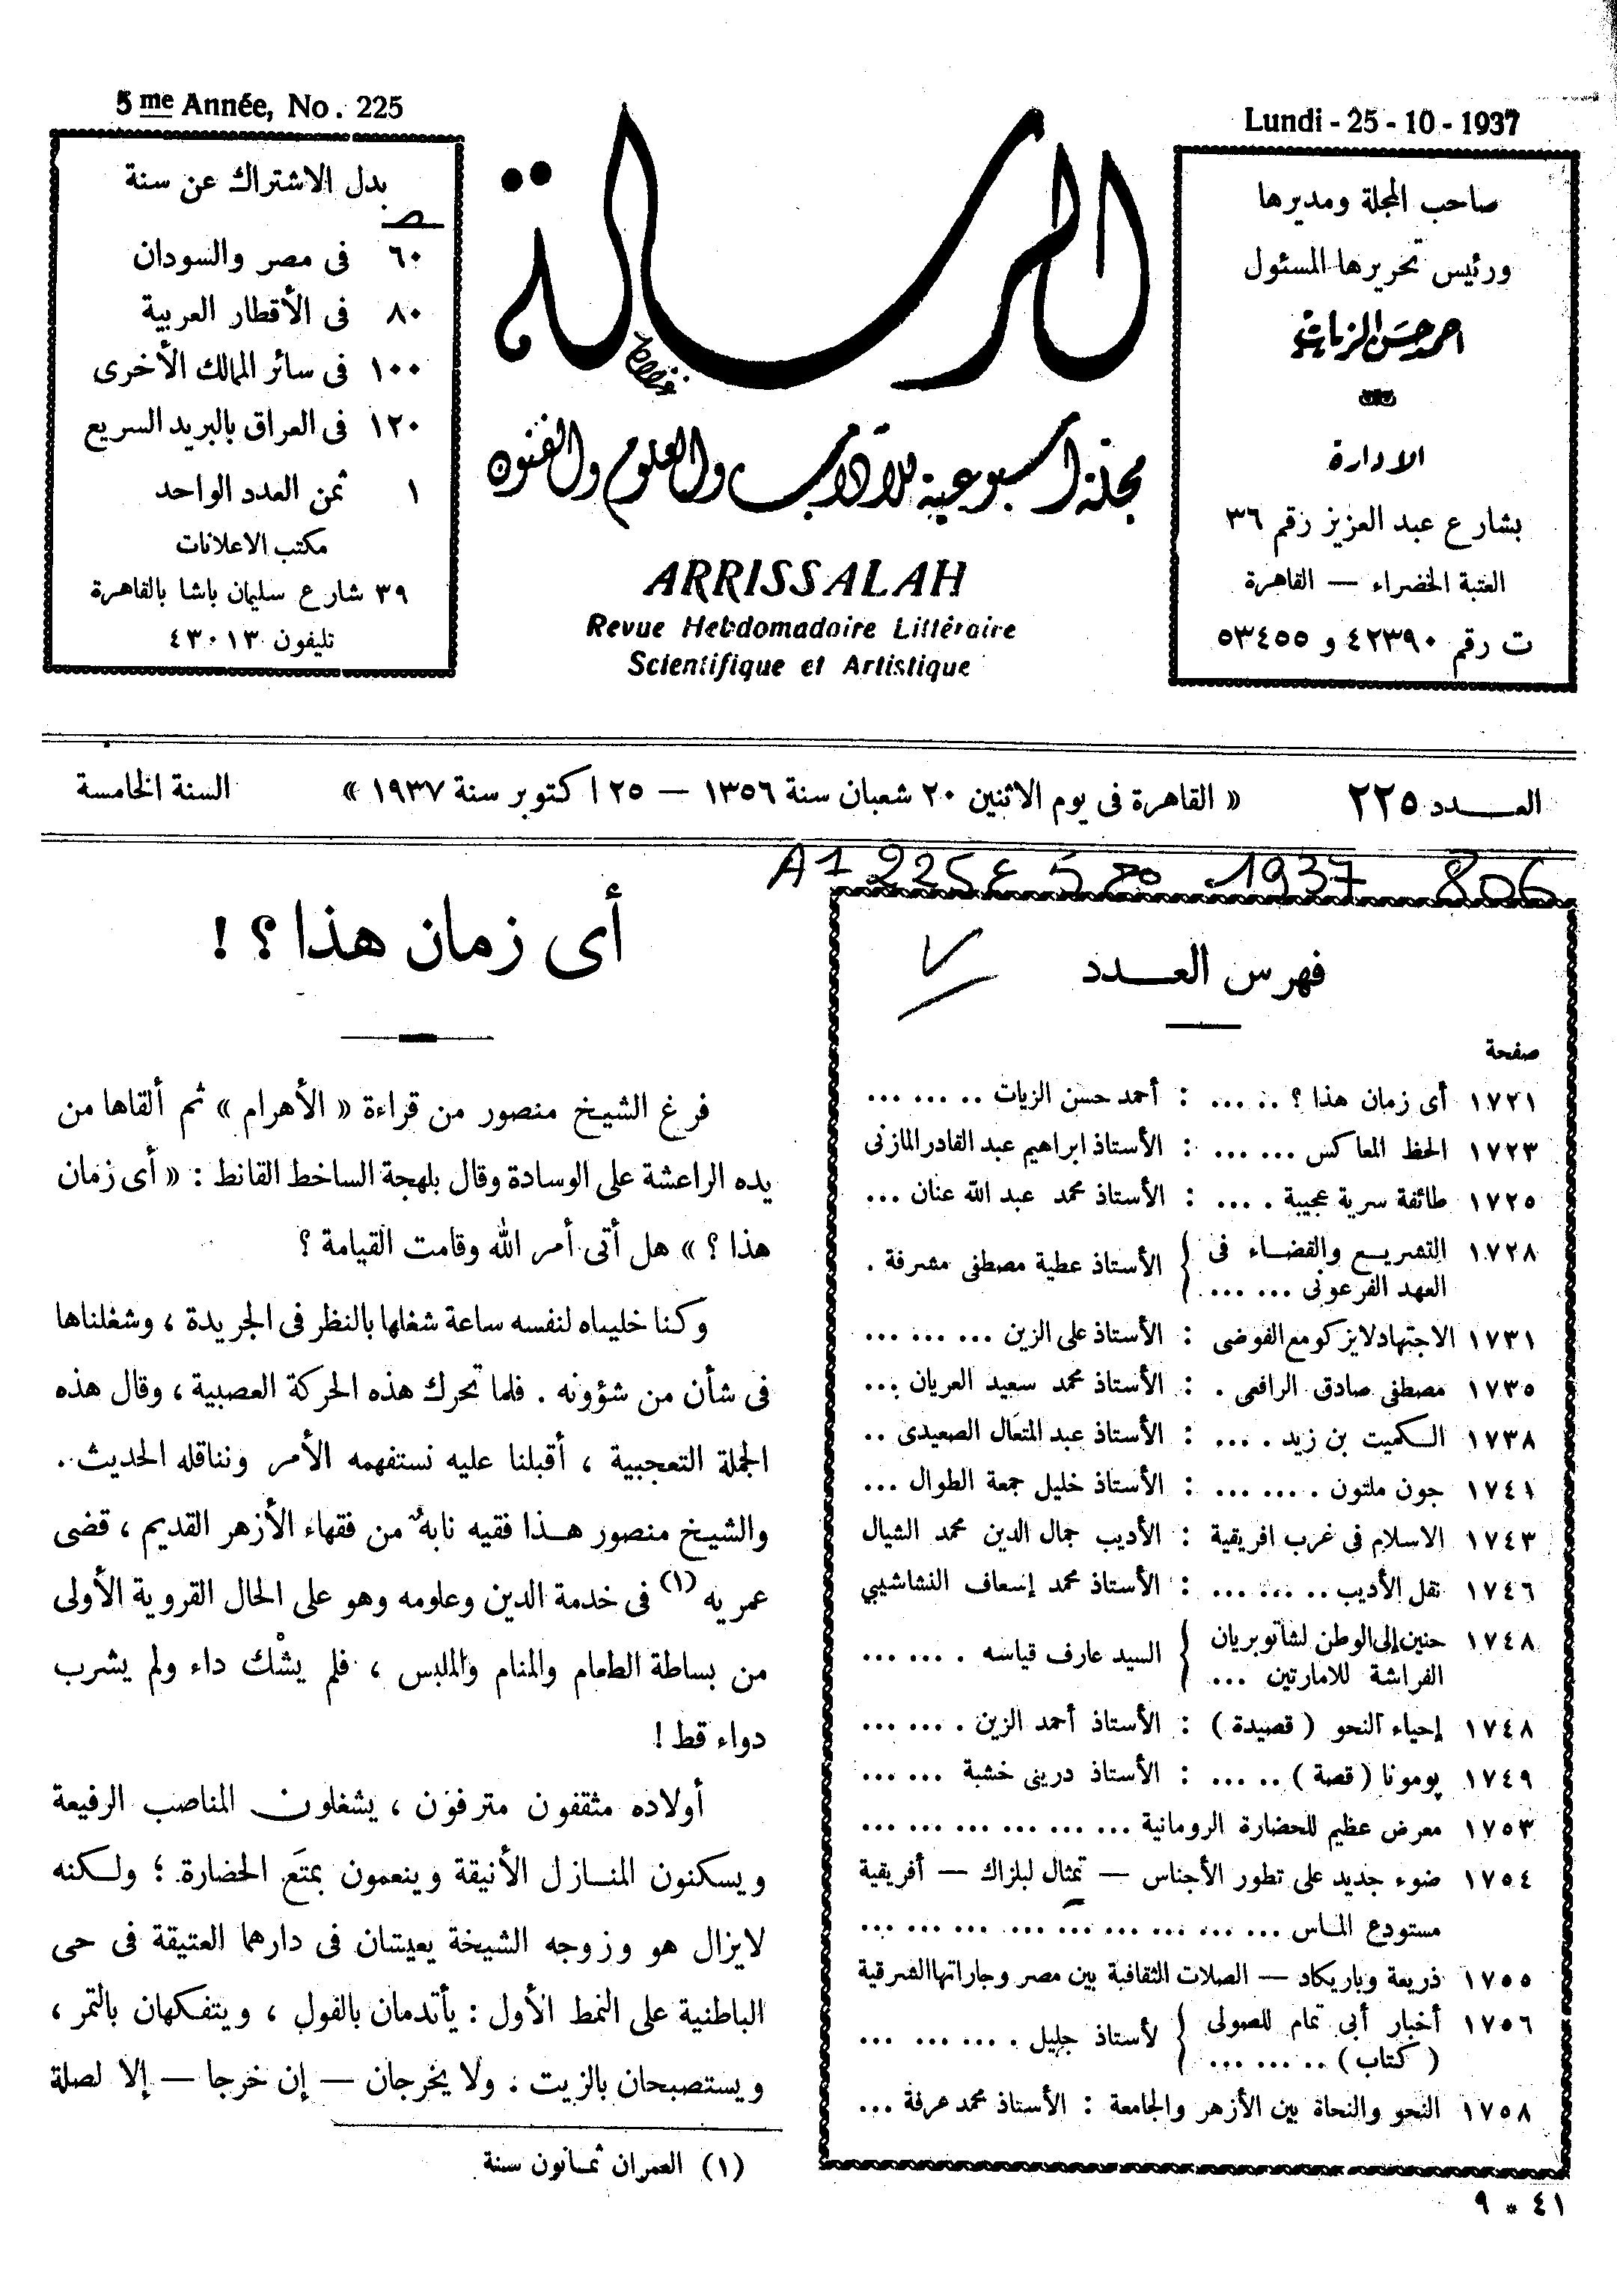 5me Année, No. 225
Lundi - 25 - 10 - 1937
صاحب المجلة ومديرها
ورئيس تحريرها المسئول
احمد حسن الزيات
الادارة
بشارع عبد العزيز رقم ٣٦
العتبة الخضراء — القاهرة
ت رقم ٤٢٣٩٠ و ٥٣٤٥٥
الرسالة
مجلة أسبوعية للآداب والعلوم والفنون
ARRISSALAH
Revue Hebdomadaire Littéraire
Scientifique et Artistique
بدل الاشتراك عن سنة
ص
٦٠ فى مصر والسودان
٨٠ فى الأقطار العربية
١٠٠ فى سائر الممالك الأخرى
١٢٠ فى العراق بالبريد السريع
١ ثمن العدد الواحد
مكتب الاعلانات
٣٩ شارع سليمان باشا بالقاهرة
تليفون ٤٣٠١٣
العـــدد ٢٢٥ « القاهرة فى يوم الاثنين ٢٠ شعبان سنة ١٣٥٦ — ٢٥ اكتوبر سنة ١٩٣٧ » السنة الخامسة
A1 225 1937 806
فهرس العـــدد
صفحة
١٧٢١ أى زمان هذا ؟ .. ... : أحمد حسن الزيات .. ... ...
١٧٢٣ الحظ المعاكس ... ... : الأستاذ ابراهيم عبد القادر المازنى
١٧٢٥ طائفة سرية عجيبة . ... : الأستاذ محمد عبد الله عنان ...
١٧٢٨ التشريـــع والقضـــاء فى العهد الفرعونى ... ... } الأستاذ عطية مصطفى مشرفة .
١٧٣١ الاجتهاد لايزكو مع الفوضى : الأستاذ على الزين ... ... ...
١٧٣٥ مصطفى صادق الرافعى . : الأستاذ محمد سعيد العريان ...
١٧٣٨ الـكميت بن زيد . ... : الأستاذ عبد المتعال الصعيدى ..
١٧٤١ جون ملتون . ... ... : الأستاذ خليل جمعة الطوال ...
١٧٤٣ الاسلام فى غرب افريقية : الأديب جمال الدين محمد الشيال
١٧٤٦ نقل الأديب .. ... ... : الأستاذ محمد إسعاف النشاشيبي
١٧٤٨ حنين إلى الوطن لشاتوبريان الفراشة للامارتين ... } السيد عارف قياسه . ... ...
١٧٤٨ إحياء النحو ( قصيدة ) : الأستاذ أحمد الزين . ... ...
١٧٤٩ پومونا ( قصة ) .. ... : الأستاذ درينى خشبة ... ...
١٧٥٣ معرض عظيم للحضارة الرومانية ... ... ... ... ... ...
١٧٥٤ ضوء جديد على تطور الأجناس — تمثال لبلزاك — أفريقية
مستودع الماس ... ... ... ... ... ... ... ... ...
١٧٥٥ ذريعة وباريكاد — الصلات الثقافية بين مصر وجاراتها الشرقية
١٧٥٦ أخبار أبى تمام للصولى ( كتاب ) .. ... ... } لأستاذ جليل . ... ... ...
١٧٥٨ النحو والنحاة بين الأزهر والجامعة : الأستاذ محمد عرفة ...
٤١ * ٩
أى زمان هذا ؟ !
فرغ الشيخ منصور من قراءة « الأهرام » ثم ألقاها من
يده الراعشة على الوسادة وقال بلهجة الساخط القانط : « أى زمان
هذا ؟ » هل أتى أمر الله وقامت القيامة ؟
وكنا خليناه لنفسه ساعة شغلها بالنظر فى الجريدة ، وشغلناها
فى شأن من شؤونه . فلما تحرك هذه الحركة العصبية ، وقال هذه
الجملة التعجبية ، أقبلنا عليه نستفهمه الأمر ونناقله الحديث ..
والشيخ منصور هـذا فقيه نابهٌ من فقهاء الأزهر القديم ، قضى
عمريه (١) فى خدمة الدين وعلومه وهو على الحال القروية الأولى
من بساطة الطعام والمنام والملبس ، فلم يشْك داء ولم يشرب
دواء قط !
أولاده مثقفون مترفون ، يشغلون المناصب الرفيعة
ويسكنون المنــازل الأنيقة وينعمون بمتَع الحضارة ؛ ولـكنه
لايزال هو وزوجه الشيخة يعيشان فى دارهما العتيقة فى حى
الباطنية على النمط الأول : يأتدمان بالفول ، ويتفـكهان بالتمر ،
ويستصبحان بالزيت . ولا يخرجان — إن خرجا — إلا لصلة
(١) العمران ثمـانون سنة